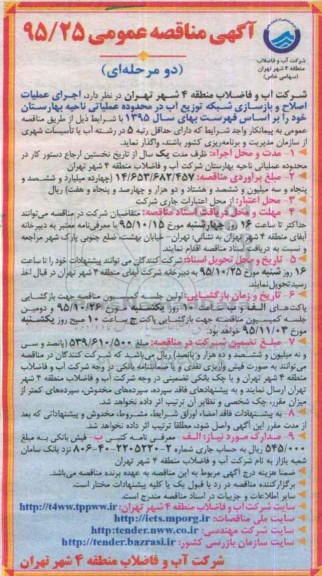 آگهی مناقصه عمومی ۹۵/۲۵
(دو مرحله‌ای)
شرکت آب و فاضلاب
منطقه ۴ شهر تهران
(سهامی خاص)
شرکت آب و فاضلاب منطقه ۴ شهر تهران در نظر دارد، اجرای عملیات
اصلاح و بازسازی شبکه توزیع آب در محدوده عملیاتی ناحیه بهارستان
خود را بر اساس فهرست بهای سال ۱۳۹۵ با شرایط ذیل از طریق مناقصه
عمومی به پیمانکار واجد شرایط که دارای حداقل رتبه ۵ در رشته آب یا تأسیسات شهری
از سازمان مدیریت و برنامه‌ریزی کشور باشند، واگذار نماید.
۱- مدت و محل اجرا: ظرف مدت یک سال از تاریخ نخستین ارجاع دستور کار در
محدوده عملیاتی ناحیه بهارستان شرکت آب و فاضلاب منطقه ۴ تهران
۲- مبلغ برآوردی مناقصه: ۱۴/۶۵۳/۶۸۲/۴۵۷ (چهارده میلیارد و ششصد و
پنجاه و سه میلیون و ششصد و هشتاد و دو هزار و چهارصد و پنجاه و هفت) ریال
۳- محل اعتبار: از محل اعتبارات جاری شرکت
۴- مهلت و محل دریافت اسناد مناقصه: متقاضیان شرکت در مناقصه می‌توانند
حداکثر تا ساعت ۱۶ روز چهارشنبه مورخ ۹۵/۱۰/۱۵ با معرفی نامه معتبر به دبیرخانه
آبفای منطقه ۴ شهر تهران به نشانی: تهران- خیابان بهشت، ضلع جنوبی پارک شهر مراجعه
و نسبت به دریافت اسناد مناقصه اقدام نمایند.
۵- تاریخ و محل تحویل اسناد: شرکت کنندگان می توانند پیشنهادات خود را تا ساعت
۱۶ روز شنبه مورخ ۹۵/۱۰/۲۵ به دبیرخانه شرکت آبفای منطقه ۴ شهر تهران در قبال اخذ
رسید تحویل نمایند.
۶- تاریخ و زمان بازگشایی: اولین جلسه کمیسیون مناقصه جهت بازگشایی
پاکت‌های الف و ب ساعت ۱۰ روز یکشنبه مورخ ۹۵/۱۰/۲۶ و دومین
جلسه کمیسیون مناقصه جهت بازگشایی پاکت ج ساعت ۱۰ صبح روز یکشنبه
مورخ ۹۵/۱۱/۰۳ خواهد بود.
۷- مبلغ تضمین شرکت در مناقصه: مبلغ ۵۳۹/۶۱۰/۵۰۰ (پانصد و سی
و نه میلیون و ششصد و ده هزار و پانصد) ریال می‌باشد که شرکت کنندگان در مناقصه
می‌توانند به صورت فیش واریزی نقدی و یا ضمانتنامه بانکی در وجه شرکت آب و فاضلاب
منطقه ۴ شهر تهران و یا چک بانکی تضمینی در وجه شرکت آب و فاضلاب منطقه ۴ شهر
تهران ارسال نمایند و به پیشنهادهای فاقد سپرده، سپرده‌های مخدوش، سپرده‌های کمتر از
میزان مقرر، چک شخصی و نظایر آن ترتیب اثر داده نخواهد شد.
۸- به پیشنهادات فاقد امضاء اوراق شرایط، مشروط، مخدوش و پیشنهاداتی که بعد
از مدت مقرر این آگهی واصل شود، مطلقا ترتیب اثر داده نخواهد شد.
۹- مدارک مورد نیاز: الف- معرفی نامه کتبی ب- فیش بانکی به مبلغ
۵۴۵/۰۰۰ ریال به حساب جاری شماره ۲-۲۲۰۵۲۲۰-۴۰-۸۰۶ نزد بانک سامان
شعبه بازار به نام شرکت آب و فاضلاب منطقه ۴ شهر تهران
ضمنا هزینه درج آگهی مربوط به این مناقصه به عهده برنده مناقصه می‌باشد.
برگزارکننده مناقصه در رد یا قبول یک یا کلیه پیشنهادات مختار است.
سایر اطلاعات و جزییات در اسناد مناقصه مندرج است.
سایت شرکت آب و فاضلاب منطقه ۴ شهر تهران: http://t4ww.tppww.ir
سایت ملی مناقصات: http://iets.mporg.ir
سایت شرکت مهندسی: http:tender.nww.co.ir
سایت سازمان بازرسی کشور: http://tender.bazrasi.ir
شرکت آب و فاضلاب منطقه ۴ شهر تهران